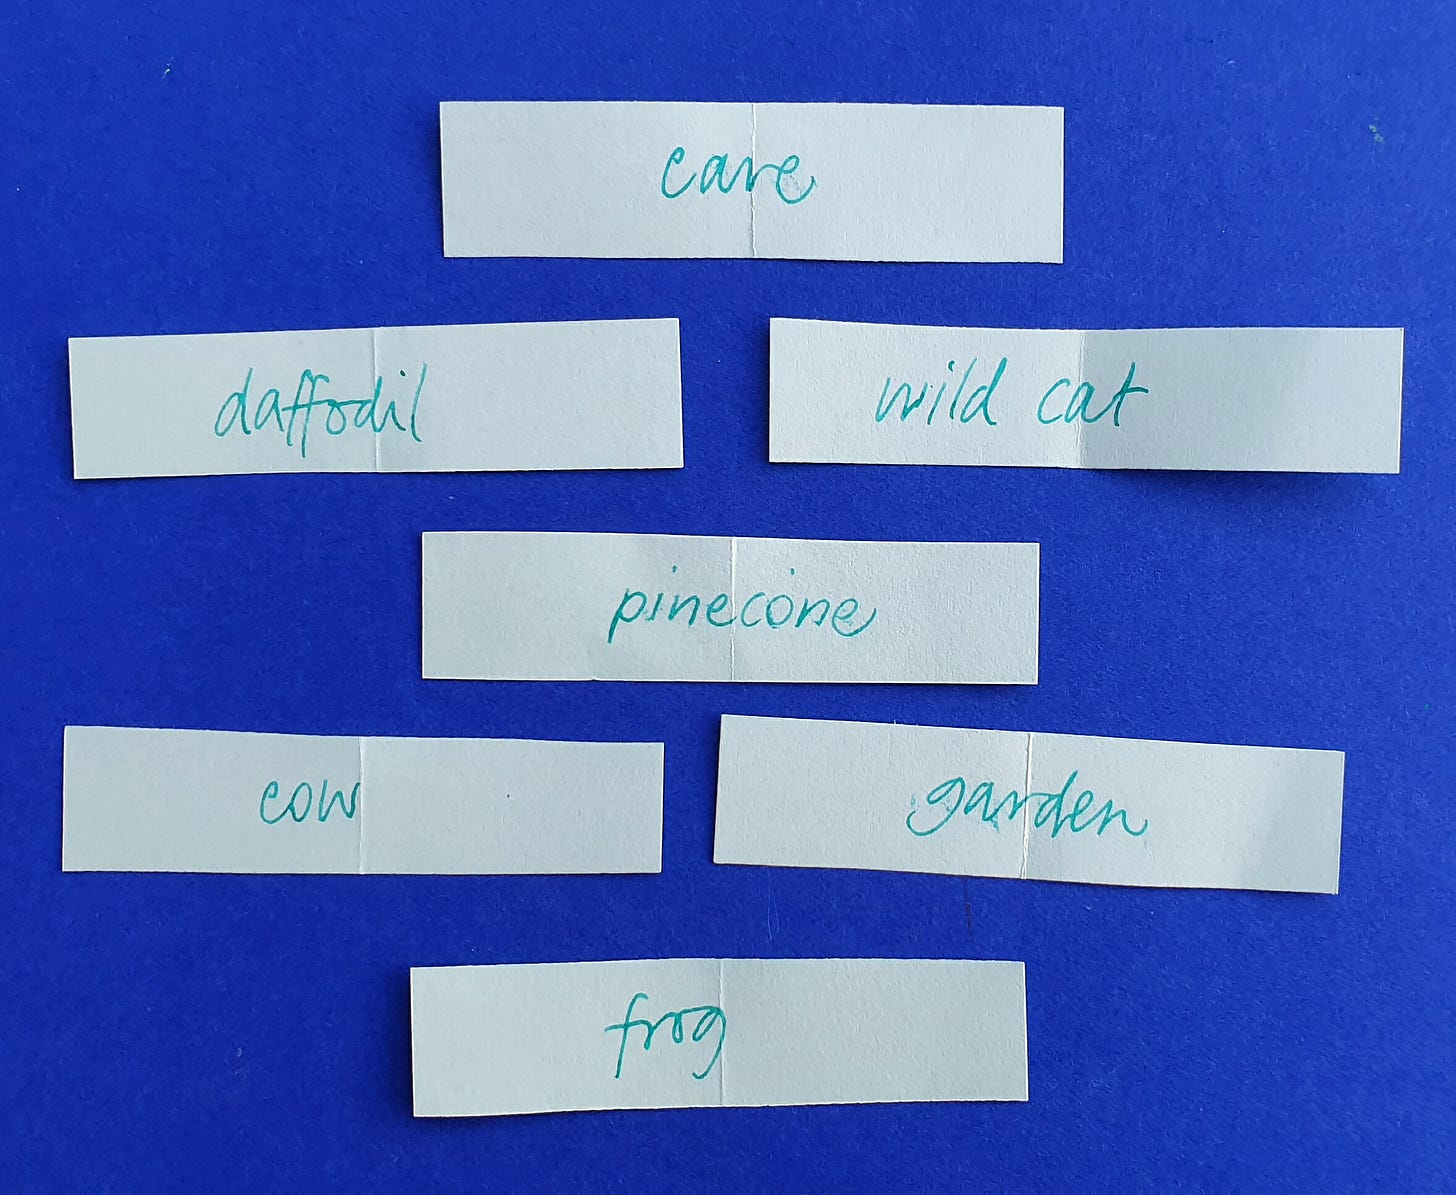 care
daffodil
wild cat
pinecone
cow
garden
frog